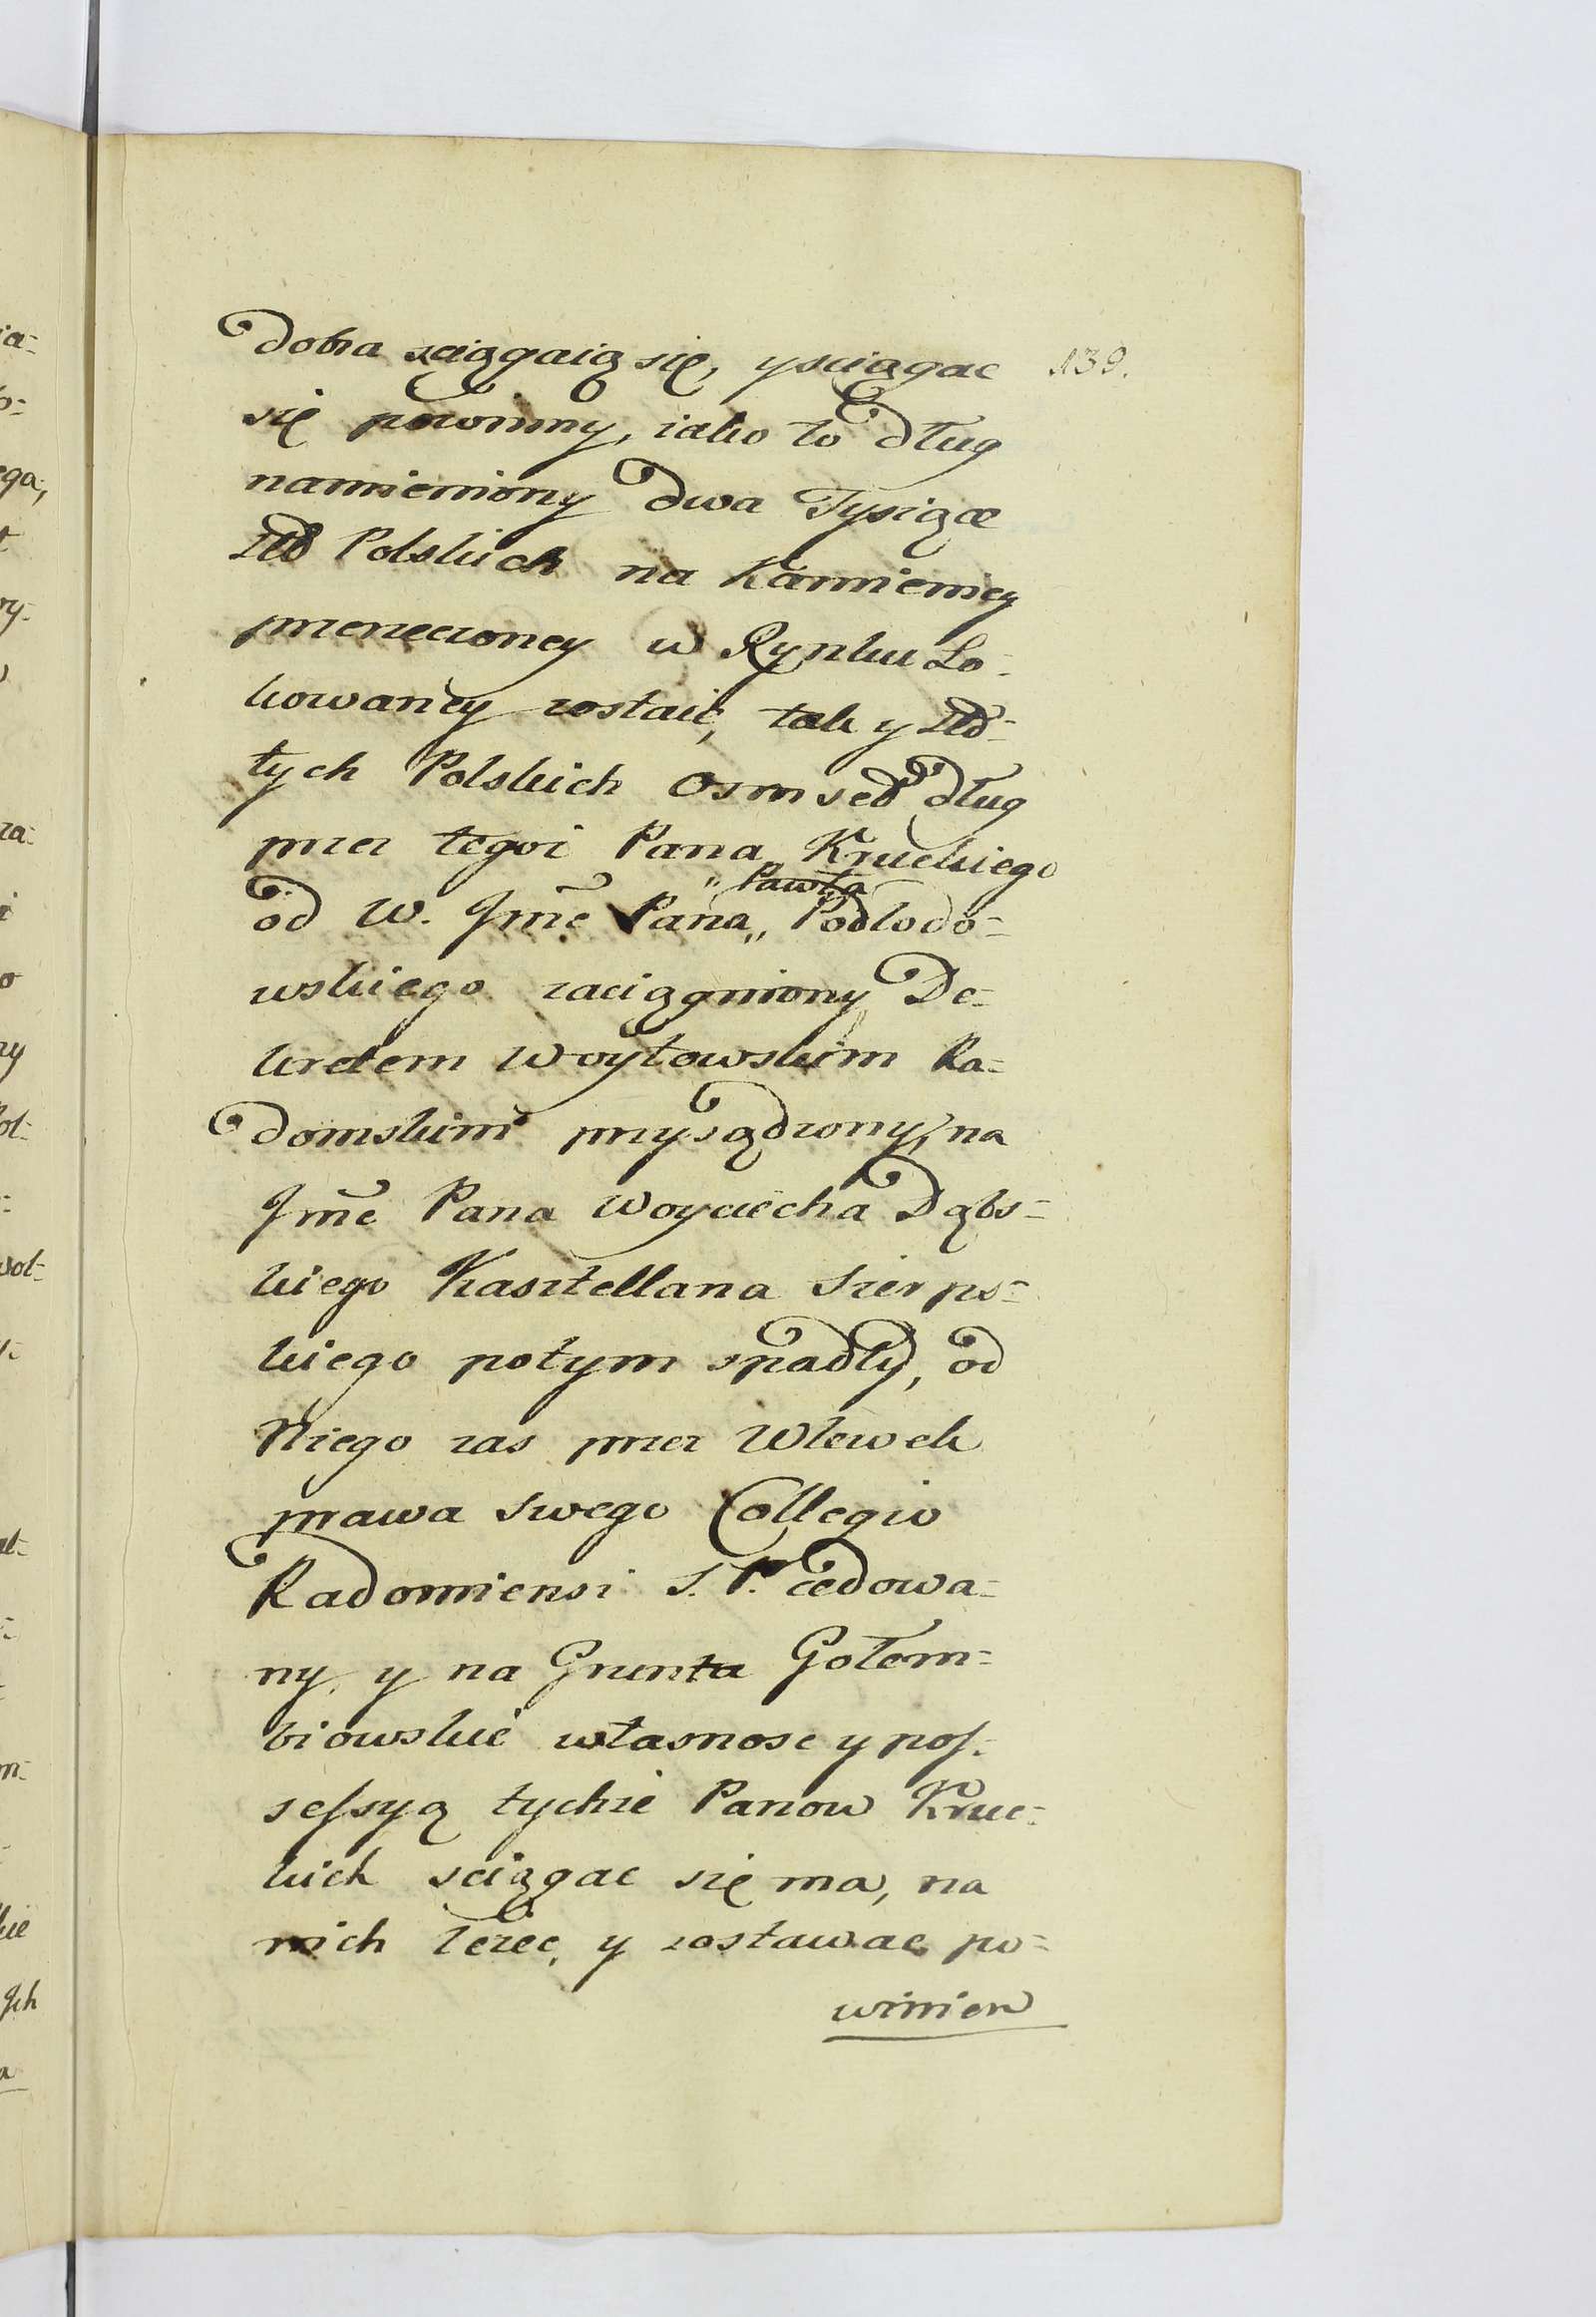 dobra sciągaią się, y sciągac 139.
się powinny, iako to dług
namieniony dwa Tysiące
Zło Polskich na Kamienicy
przerzeczoney w Rynku Lo-
kowaney zostaie, tak y Zło-
tych Polskich Osmset dług
przez tegoż Pana Kruckiego
„ Pawła
od W. Jmc̃ Pana „ Podlodo-
wskiego zaciągniony De-
kretem Woytowskim Ra-
domskim przysądzony, na
Jmc̃ Pana Woyciecha Dąbs-
kiego Kasztellana Sierps-
kiego potym spadły, od
Niego zas przez Wlewek
prawa swego Collegio
Radomiensi S. P. cedowa-
ny, y na Grunta Gołem-
biowskie własnosc y pos-
sessyą tychże Panow Kruc-
kich sciągac się ma, na
nich leżec, y zostawac po-
winien